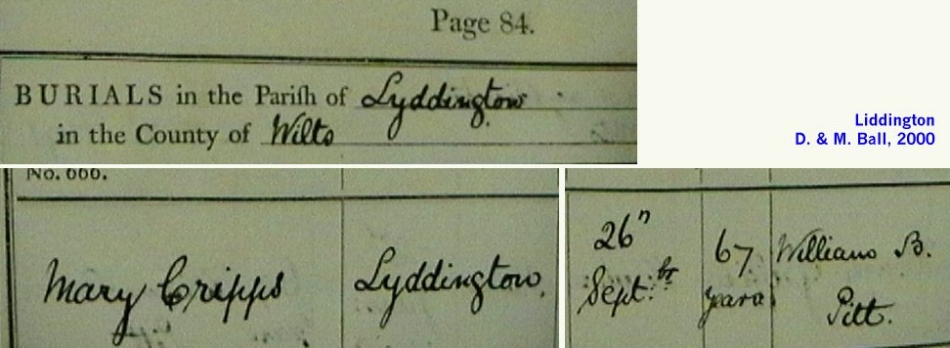 Page 84.
BURIALS in the Parish of Lyddington
in the County of Wilts
Liddington
D. & M. Ball, 2000
No. 666.
Mary Cripps
Lyddington.
26"
Sept:br
67
years
William B.
Pitt.